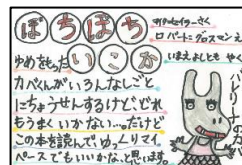 ぼちぼち
いこか
マイク=セイラーさく
ロバート=グロスマンえ
いまえよしともやく
ゆめをもった
カバくんがいろんなしごと
にちょうせんするけど、どれ
もうまくいかない…。だけど
この本を読んで、ゆっくりマイ
ペースでもいいかな、と思います。
バレリーナの